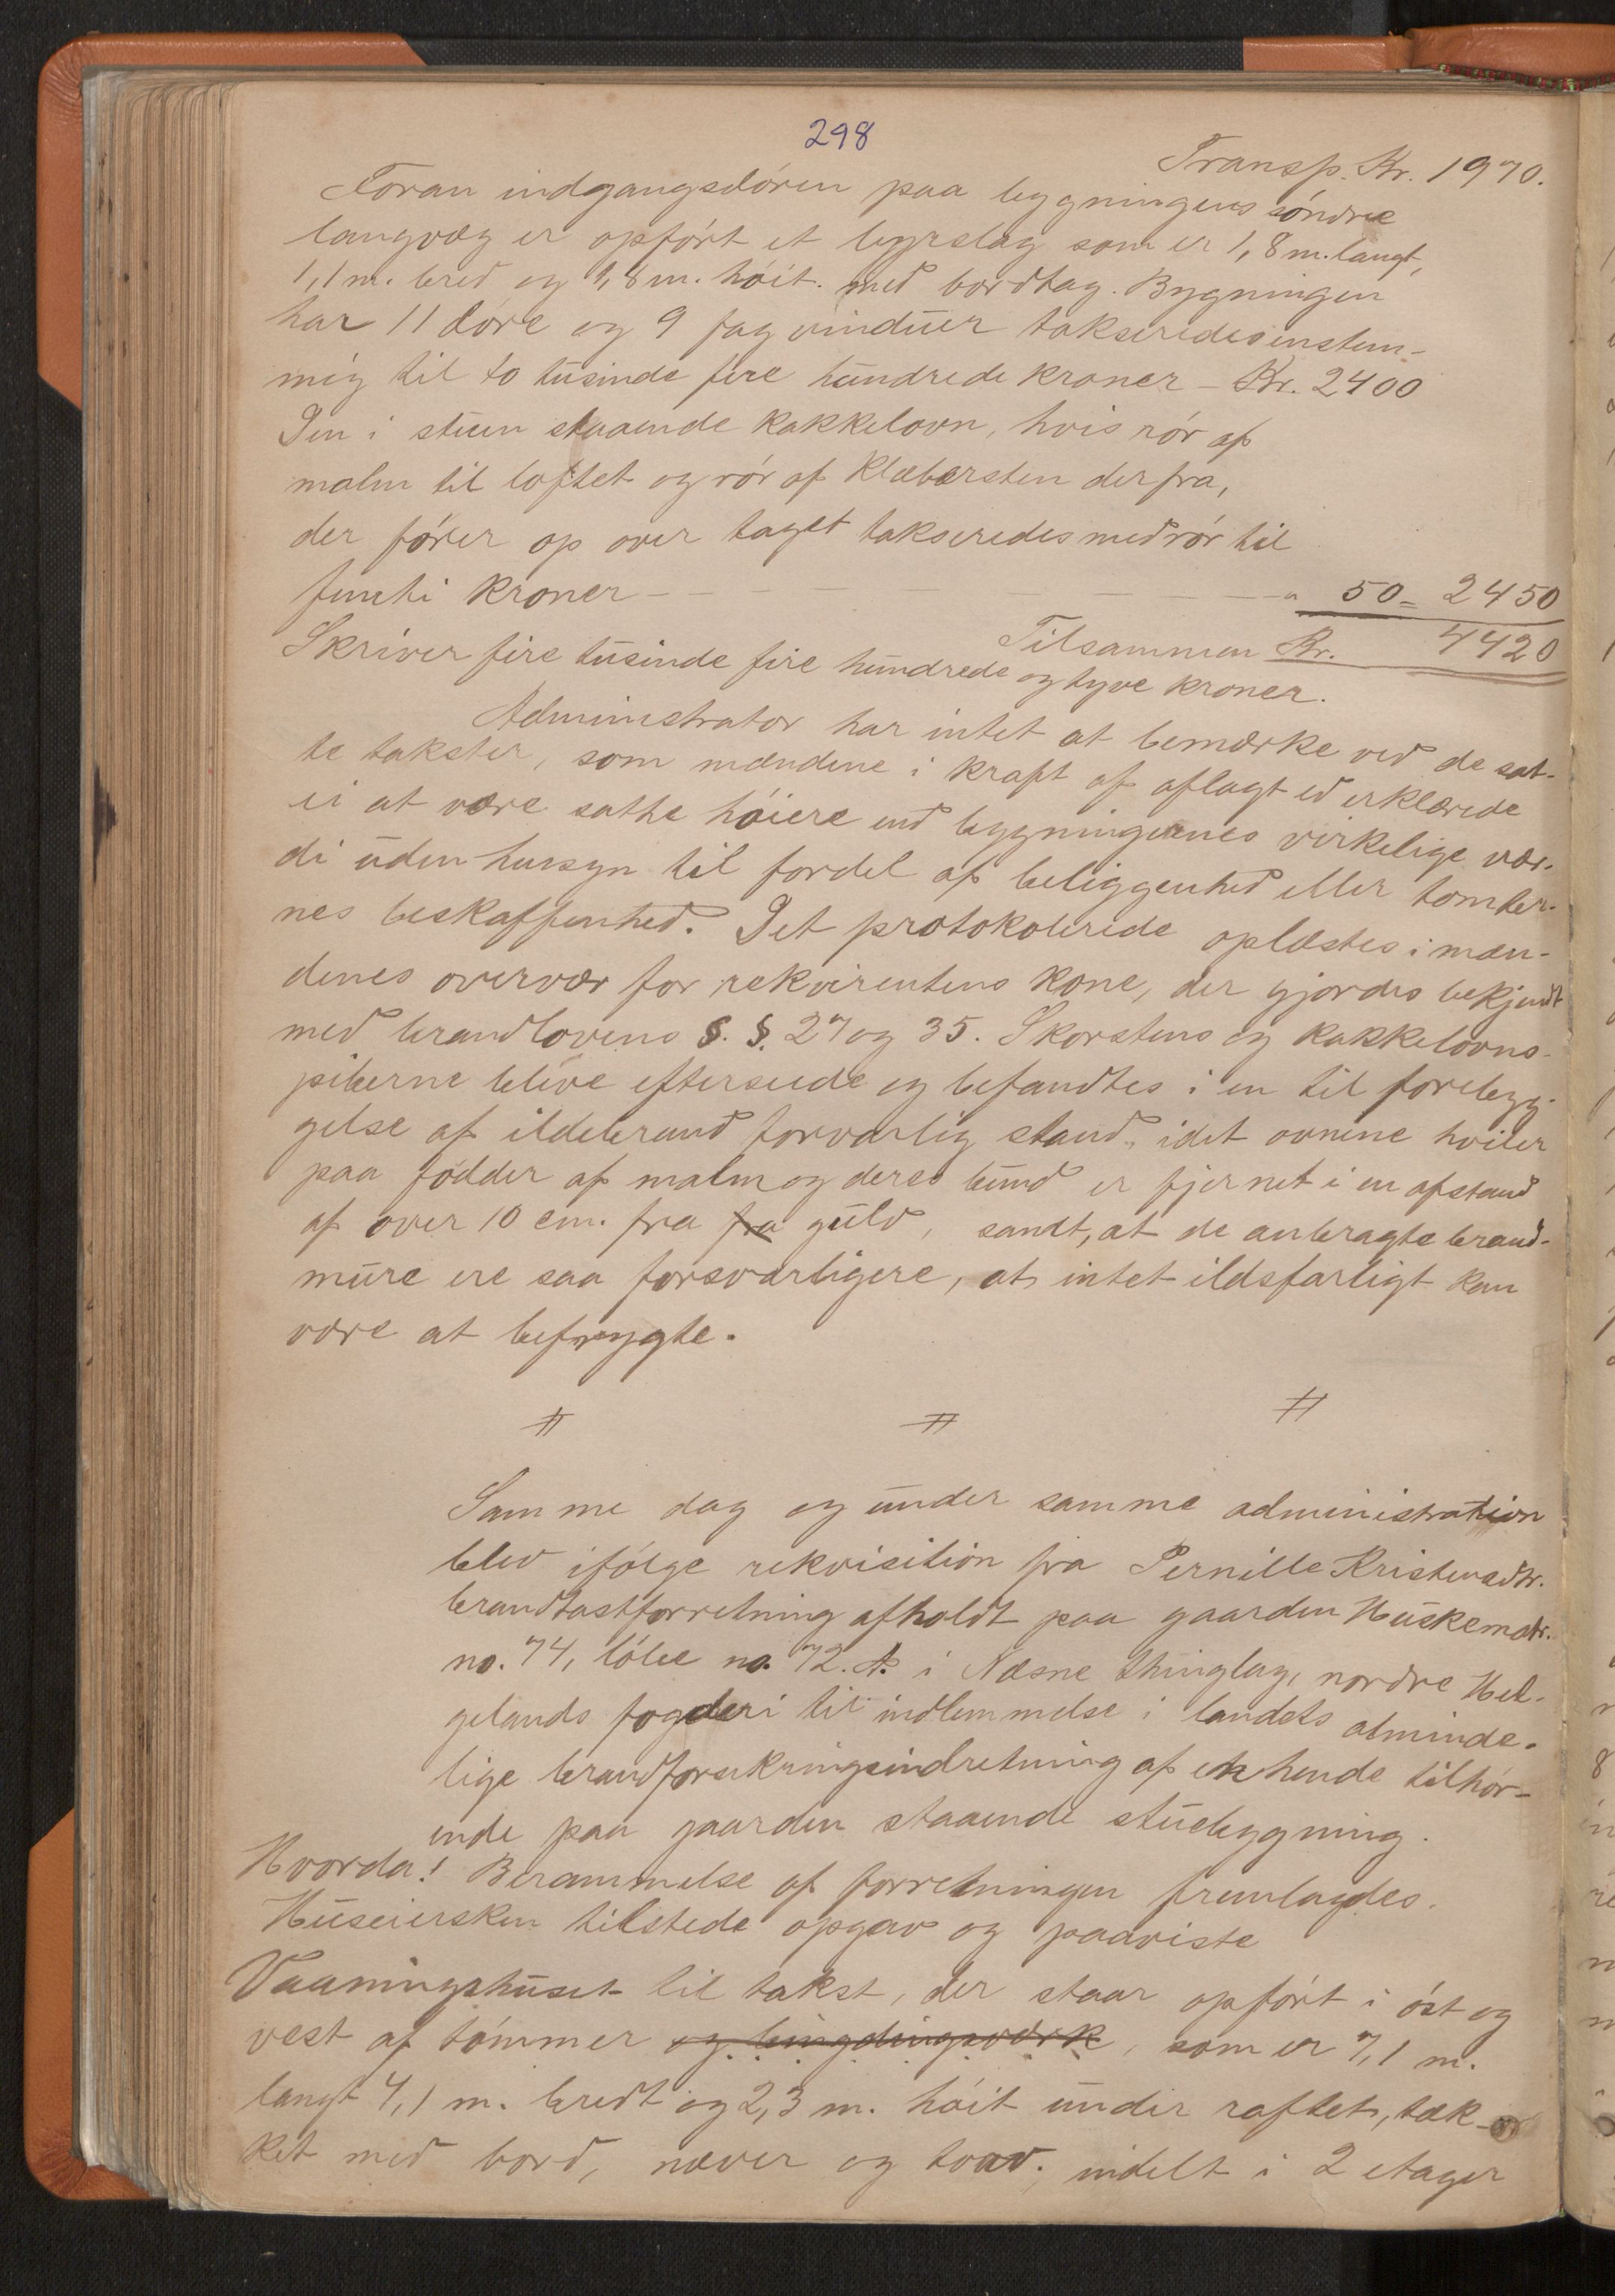 298
Transp. Kr. 1970.
Foran indgangsdóren paa bygningens sóndre
langvæg er opfórt et byrslag som er 1,8 m. langt,
1,1 m. bred og 1,8 m. hóit. med bordtag. Bygningen
har 11 dóre og 9 fag vinduer takseredes enstem-
mig til to tusinde fire hundrede kroner - Kr. 2400
Den i stuen staaende kakkelovn, hvis rór af
malm til loftet og rór af klæbersten derfra,
der fórer op over taget takseredes med rór til
femti kroner - - - - - - - " 50 = 2450
Tilsammen Kr. 4420
Skriver fire tusinde fire hundrede og tyve kroner.
Administrator har intet at bemærke ved de sat-
te takster, som mændene i kraft af aflagt ed erklærede
ei at være satte hóiere end bygningernes virkelige vær-
di uden hensyn til fordel af beliggenhed eller tomter-
nes beskaffenhed. Det protokolerede oplæstes i mæn-
denes overvær for rekvirentens kone, der gjordes bekjendt
med brandlovens §. §. 27 og 35. Skorstens og kakkelovns-
piberne bleve efterseede og befandtes i en til forebyg-
gelse af ildebrand forvarlig stand, idet ovnene hviler
paa fódder af malm og deres bund er fjernet i en afstand
af over 10 cm. fra fra gulv, samt, at de anbragte brand-
mure ere saa forsvarligere, at intet ildsfarligt kan
være at befrygte.
# # #
Samme dag og under samme administration
blev ifólge rekvisition fra Pernille Kristensdtr.
brandtastforretning afholdt paa gaarden Huskematr.
no. 74, lóbe no. 72. A. i Næsne thinglag, nordre Hel-
gelands fogderi til indlemmelse i landets alminde-
lige brandforsikringsindretning af en hende tilhór-
ende paa gaarden staaende stuebygning.
Hvorda! Berammelse af forretningen fremlagdes.
Huseiersken tilstede opgav og paaviste
Vaaningshuset til takst, der staar opfórt i óst og
vest af tómmer og bingdingsværk, som er 7,1 m.
langt 4,1 m. bredt og 2,3 m. hóit under raftet, tæk-
ket med bord, næver og torv. indelt i 2 etager